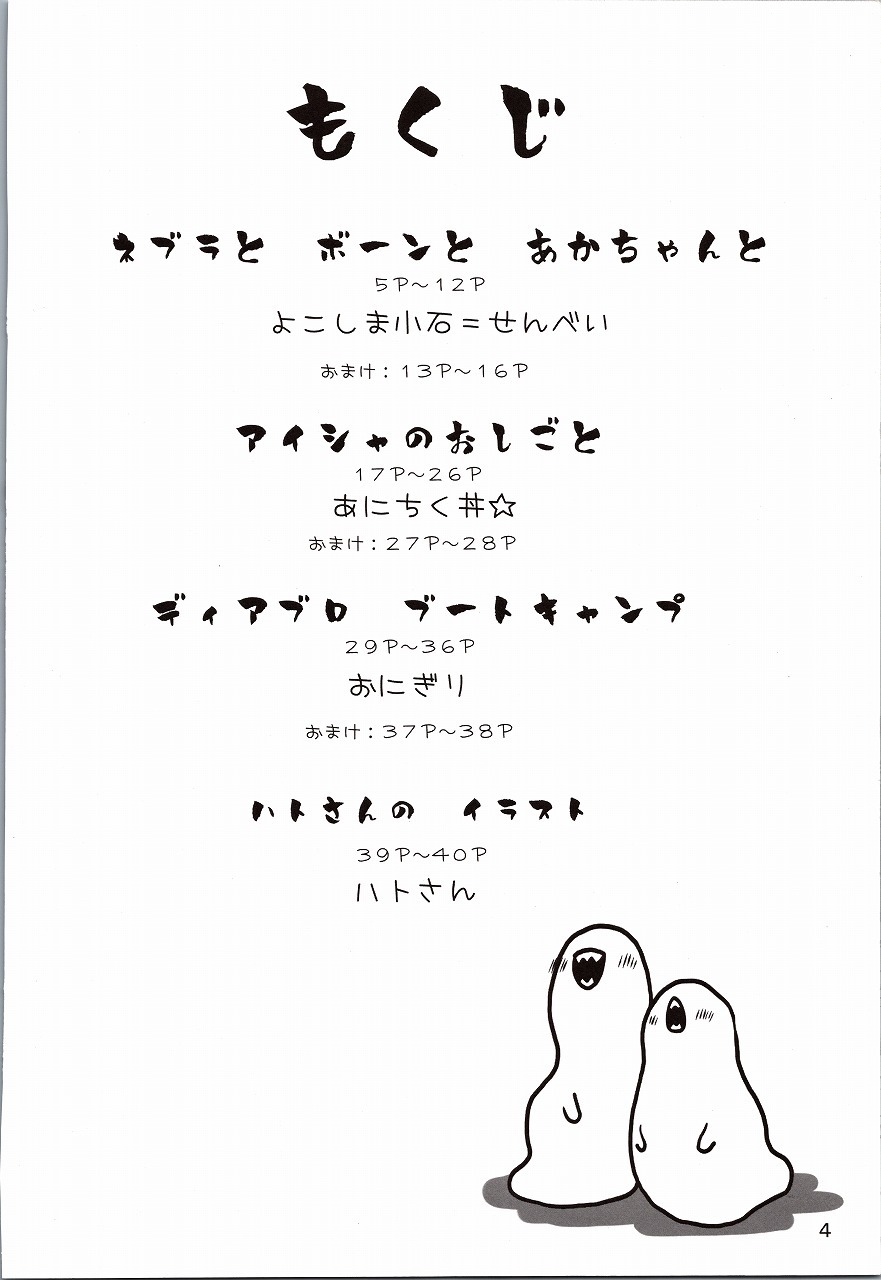 もくじ
ネブラと　ボーンと　あかちゃんと
５Ｐ～１２Ｐ
よこしま小石＝せんべい
おまけ：１３Ｐ～１６Ｐ
アイシャのおしごと
１７Ｐ～２６Ｐ
あにちく丼☆
おまけ：２７Ｐ～２８Ｐ
ディアブロ　ブートキャンプ
２９Ｐ～３６Ｐ
おにぎり
おまけ：３７Ｐ～３８Ｐ
ハトさんの　イラスト
３９Ｐ～４０Ｐ
ハトさん
4